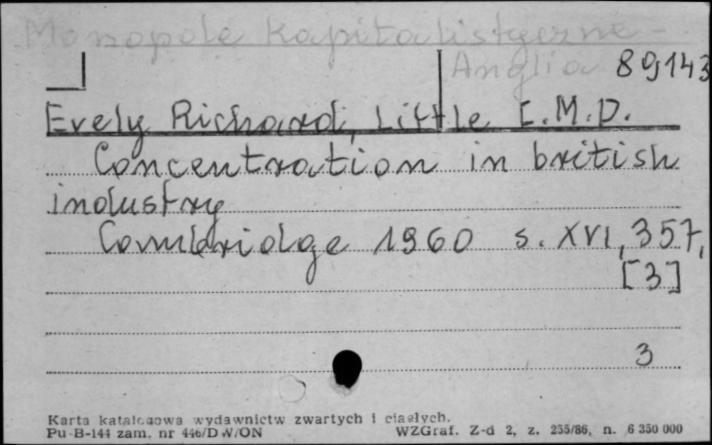 Monopole kapitalistyczne -
Anglia 89143
Evely Richard, Little I.M.D.
Concentration in british
industry
Cambridge 1960 s. XVI, 357,
[3]
3
Karta katalogowa wydawnictw zwartych i ciągłych.
Pu-B-144 zam. nr 446/DW/ON WZGraf. Z-d 2, z. 255/86, n. 6 350 000